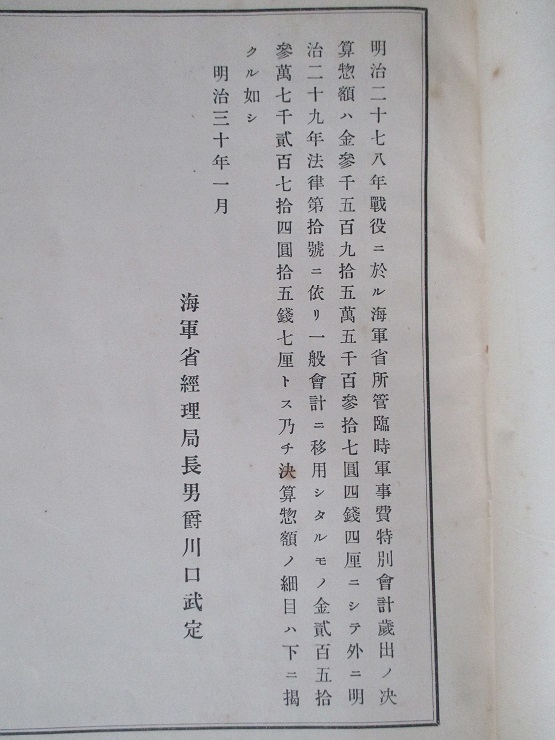 明治二十七八年戰役ニ於ル海軍省所管臨時軍事費特別會計歲出ノ決
算惣額ハ金參千五百九拾五萬五千百參拾七圓四錢四厘ニシテ外ニ明
治二十九年法律第拾號ニ依リ一般會計ニ移用シタルモノ金貳百五拾
參萬七千貳百七拾四圓拾五錢七厘トス乃チ決算惣額ノ細目ハ下ニ揭
クル如シ
明治三十年一月
海軍省經理局長男爵川口武定